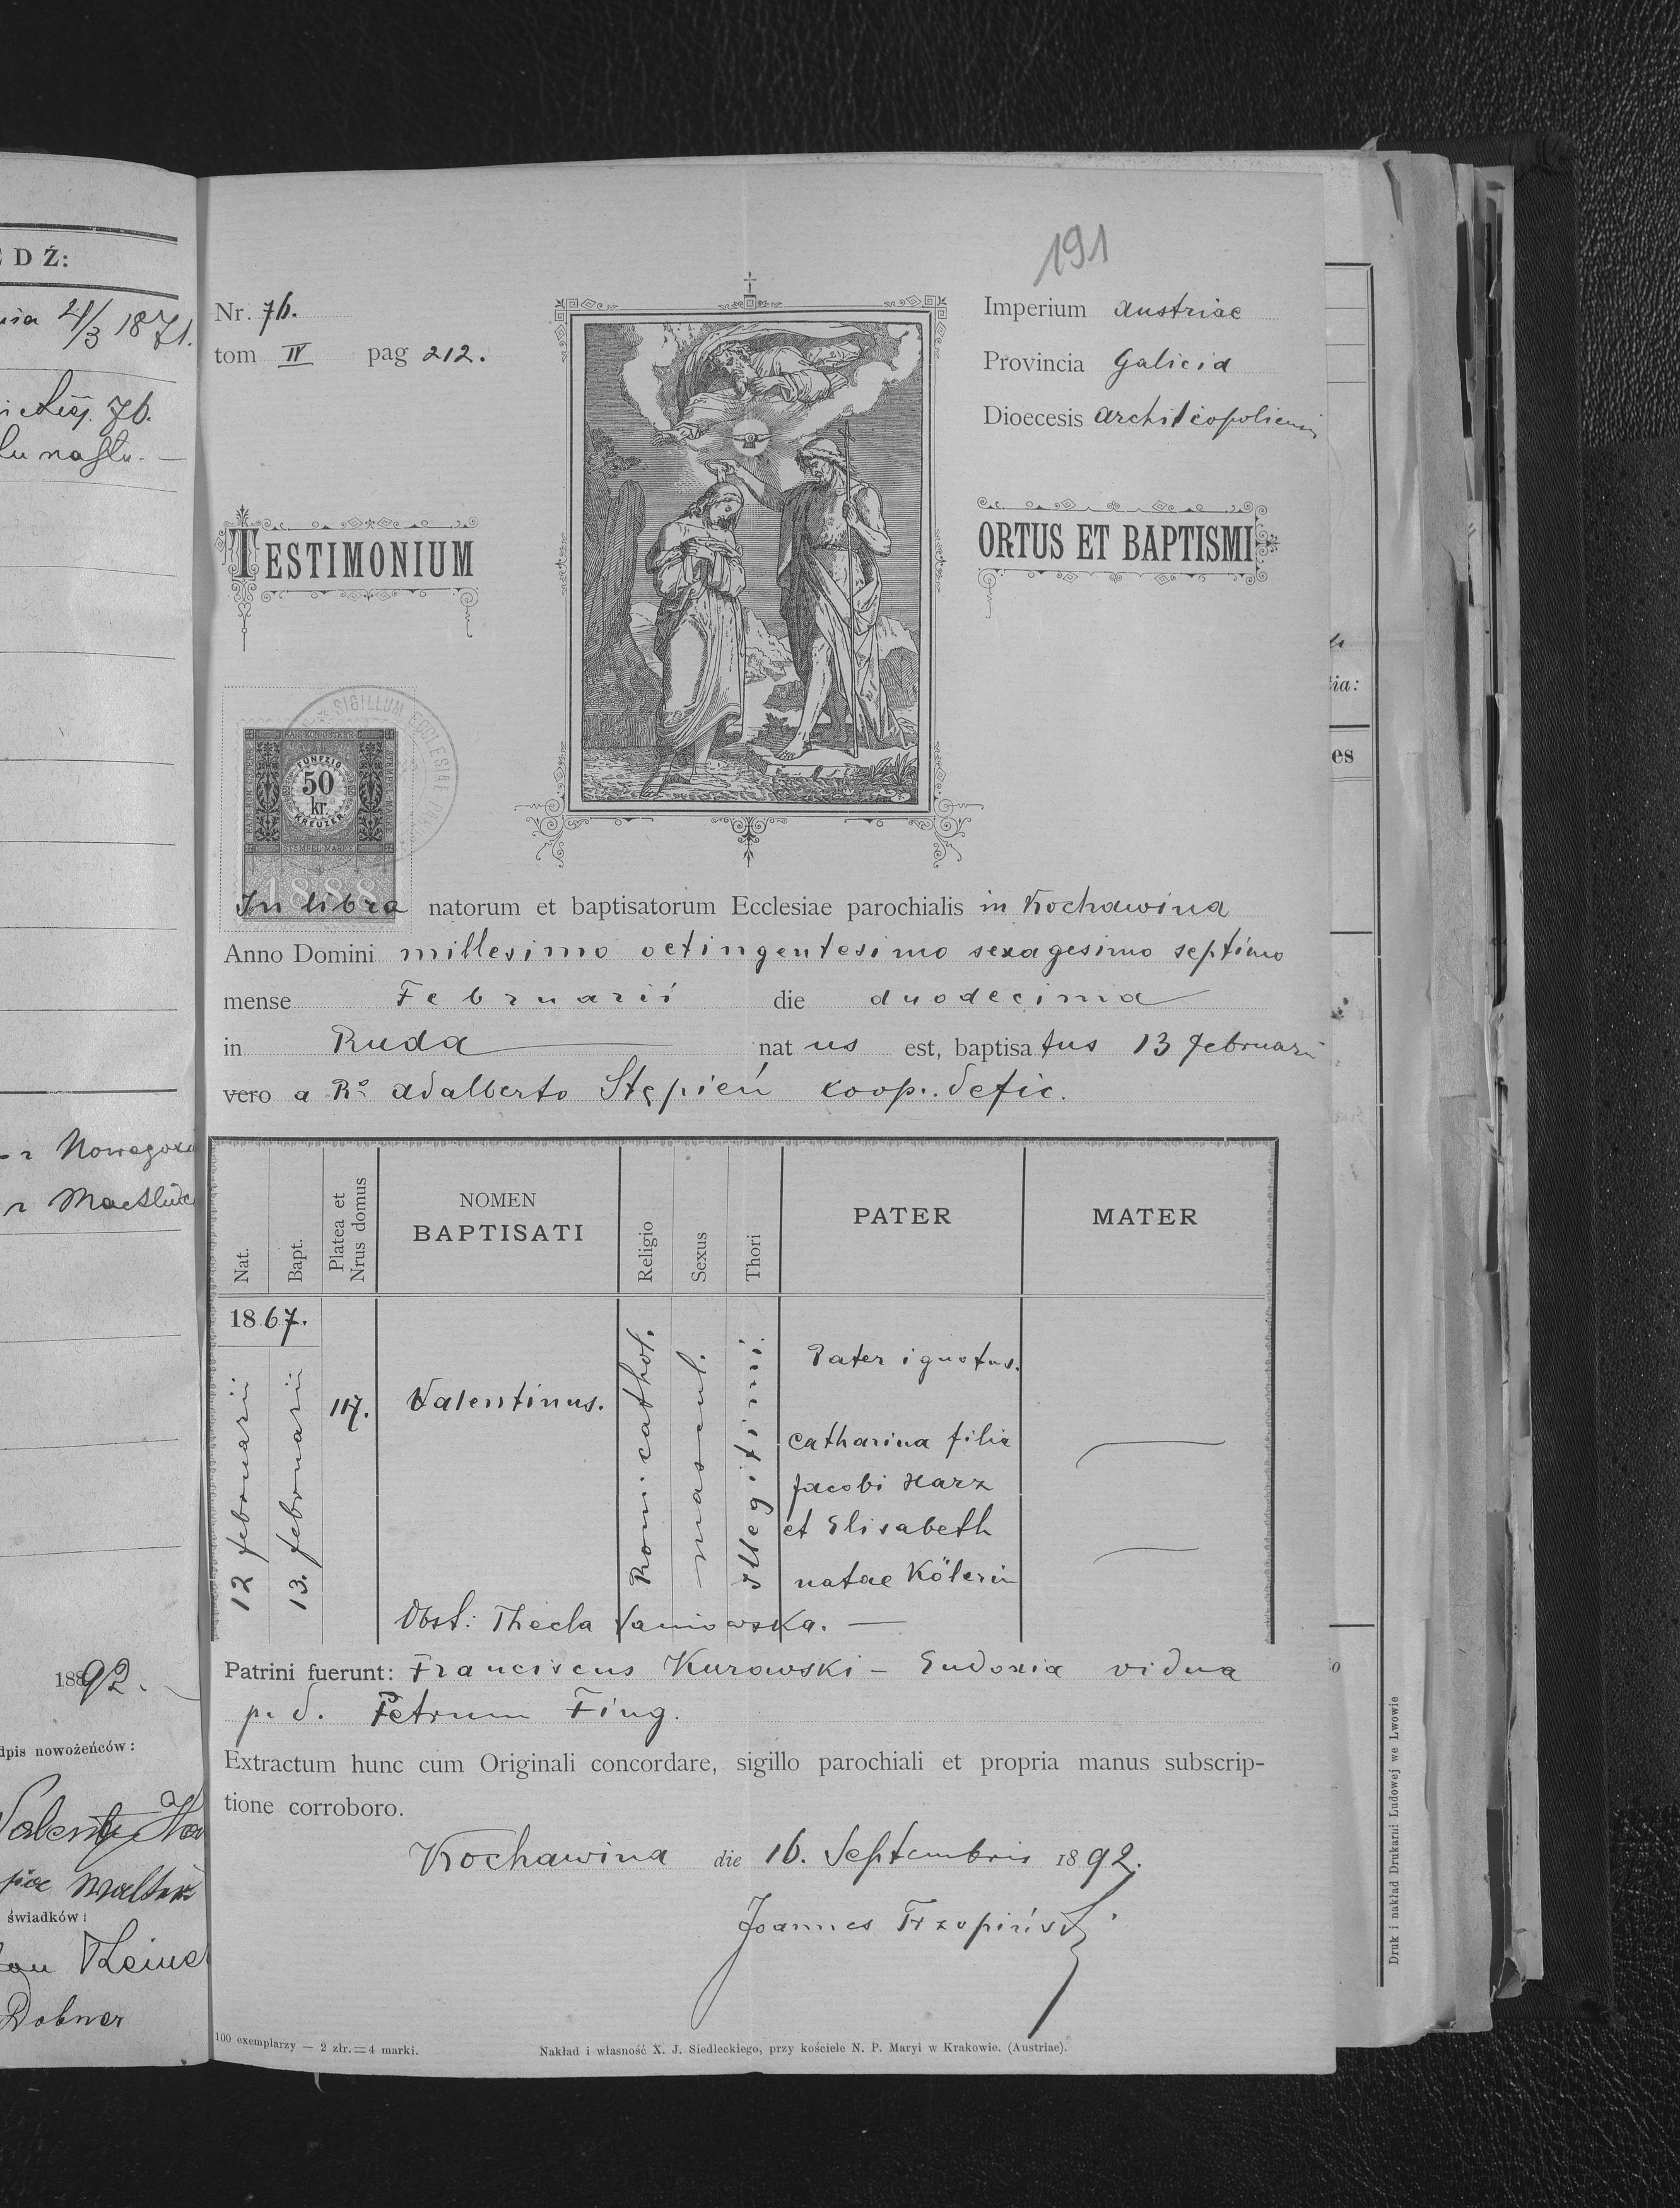 DŹ:
4/3 1871.
76.
Nowego
1892.
dpis nowożeńców:
świadków:
Dobner
191
Nr. 76.
tom IV pag 212.
Imperium Austriae
Provincia Galicia
Dioecesis
TESTIMONIUM
ORTUS ET BAPTISMI
SIGILLUM ECCLESIAE
FÜNFZIG
50
kr.
KREUZER
STEMPEL-MARKE
1888
In libra natorum et baptisatorum Ecclesiae parochialis in Kochawina
Anno Domini millesimo octingentesimo sexagesimo septimo
mense Februarii die duodecima
in Ruda natus est, baptisatus 13 februarii
vero a Ro Adalberto Stępień koop. defic.
Nat.
Bapt.
Platea et
Nrus domus
NOMEN
BAPTISATI
Religio
Sexus
Thori
PATER
MATER
1867.
12 februarii
13. februarii
117.
Valentinus.
Rom. cathol.
mascul.
Illegitimi
Pater ignotus.
Catharina filia
Jacobi Harz
et Elisabeth
natae Kölerin
Obst: Thecla
Patrini fuerunt: Franciscus Kurowski – Eudoxia vidua
p. d. Petrum Fing.
Extractum hunc cum Originali concordare, sigillo parochiali et propria manus subscrip-
tione corroboro.
Kochawina die 16. Septembris 1892.
Joannes Trzopiński
100 exemplarzy — 2 złr.=4 marki.
Nakład i własność X. J. Siedleckiego, przy kościele N. P. Maryi w Krakowie. (Austriae).
ia:
es
Druk i nakład Drukarni Ludowej we Lwowie